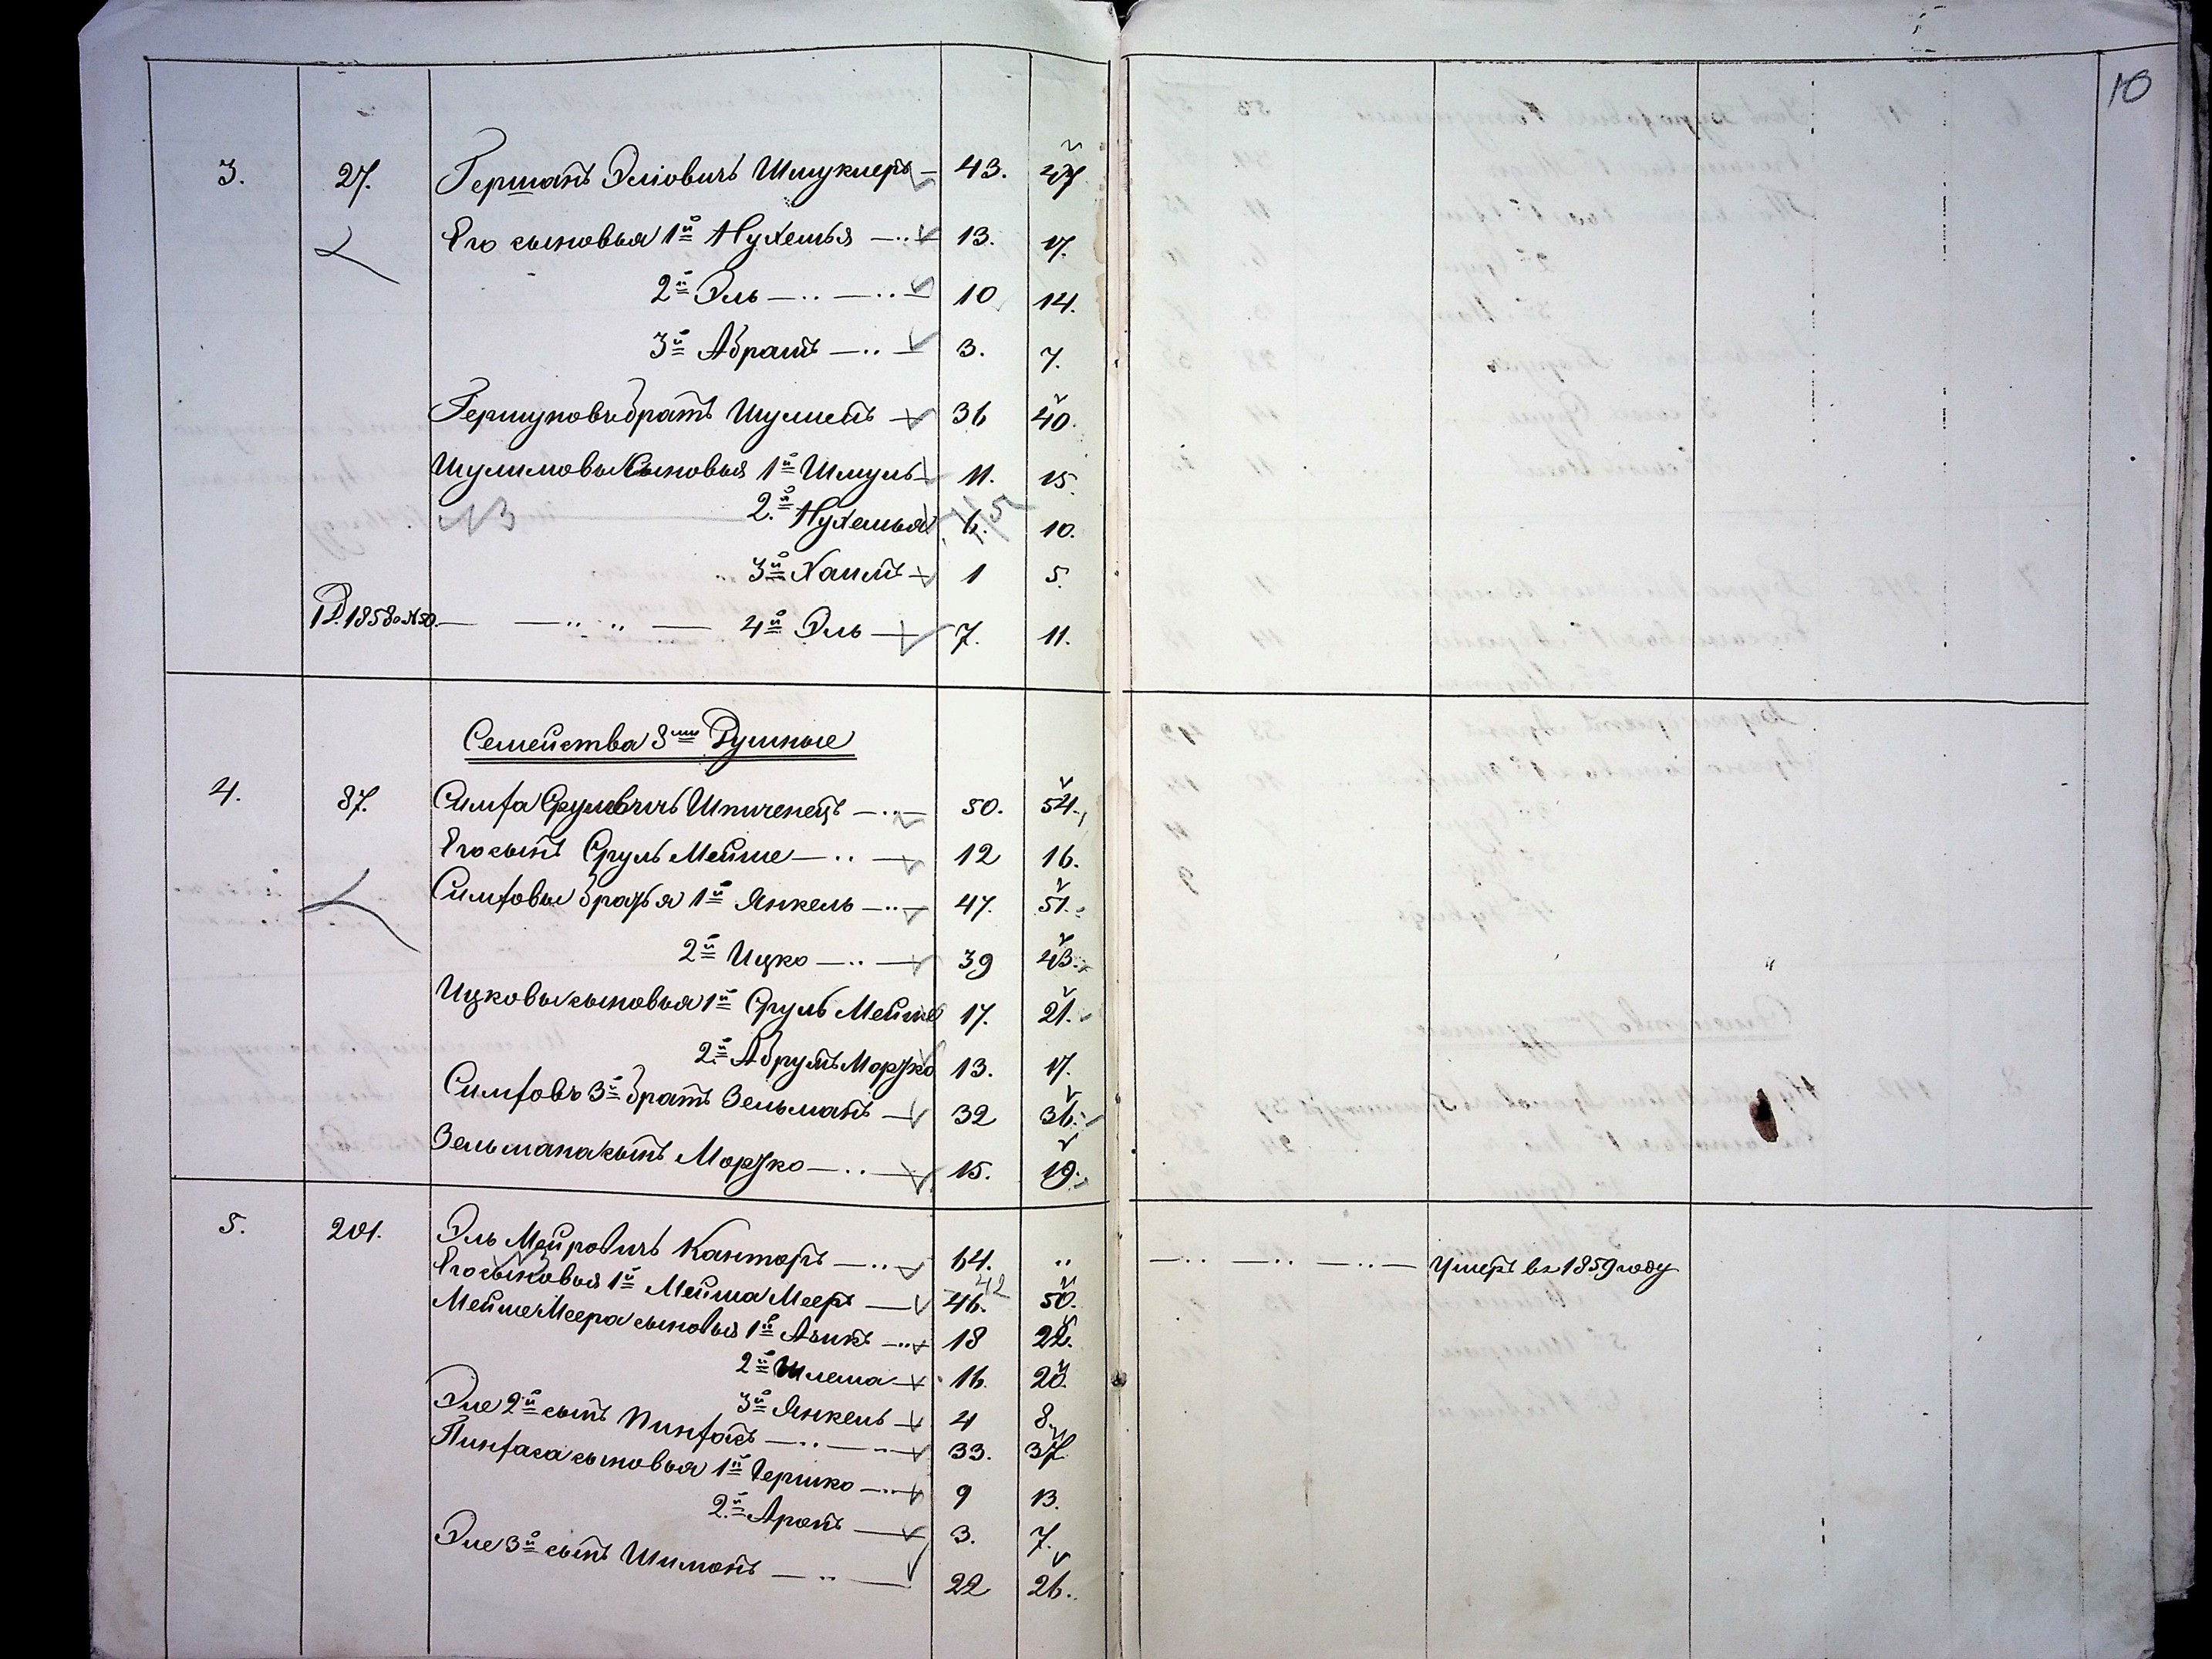 10
3. 27. Гершанъ Эліовичъ Шмуклеръ — 43. 47
Его сыновья 1й Нухемья — 13. 17.
2й Эль — 10 14.
3й Абрамъ — 3. 7.
Гершуновъ братъ Шулимъ — 36 40.
Шулимовы сыновья 1й Шмуль 11. 15.
2.й Нухемья 6. 10.
3й Хаимъ 1 5.
1858 №50. — 4й Эль — 7. 11.
Семейства 8ми Душные
4. 87. Симха Срулевичъ Шпиченецъ — 50. 54.
Его сынъ Сруль Мейше — 12 16.
Симховы братья 1й Янкель — 47. 51.
2й Ицко — 39 43.
Ицковы сыновья 1й Сруль Мейше 17. 21.
2.й Абрумъ Мортко 13. 17.
Симховъ 3й братъ Зельманъ — 32 36.
Зельмана сынъ Мортко — 15. 19.
5. 201. Эль Мейровичъ Канторъ — 64. „ — Умеръ въ 1859 году
Его сыновья 1й Мейша Мееръ — 46. 42 50.
Мейше Меера сыновья 1й Азикъ 18 22.
2й Шлема 16. 20.
3й Янкель 4 8.
Эле 2й сынъ Пинхасъ — 33. 37.
Пинхаса сыновья 1й Гершко — 9 13.
2.й Аронъ — 3. 7.
Эле 3й сынъ Шимонъ — 22 26.